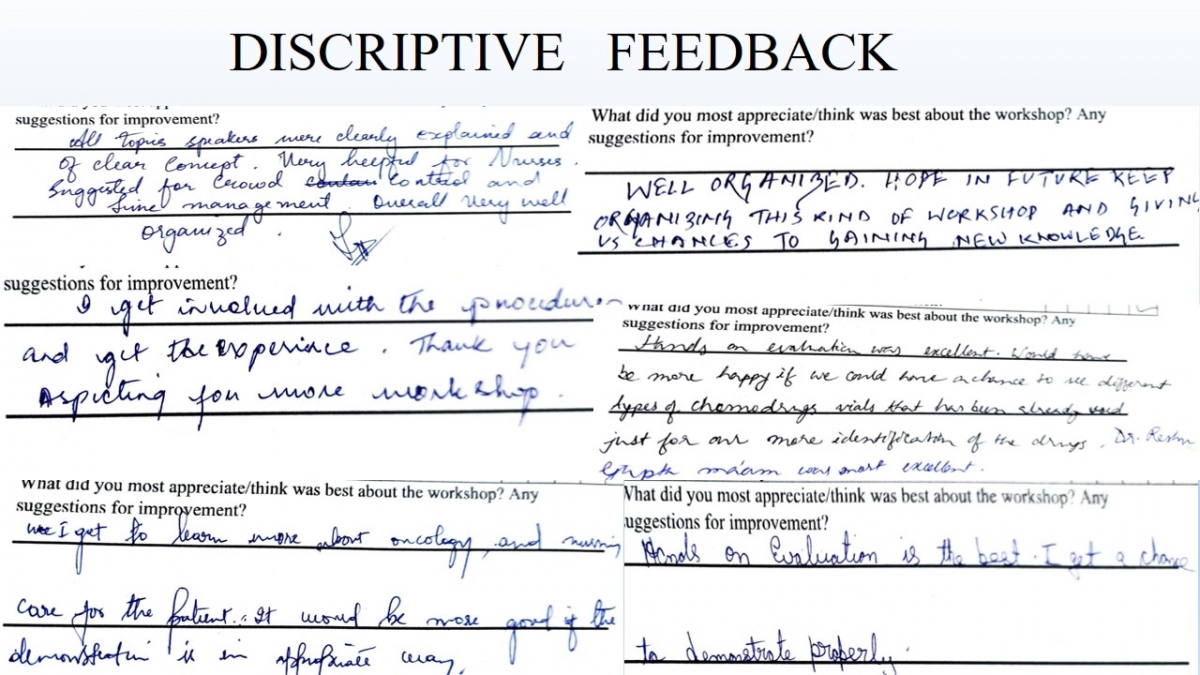 DISCRIPTIVE FEEDBACK
suggestions for improvement?
All topics speakers were clearly explained and
of clear concept. Very helpful for Nurses.
Suggested for Crowd control and
time management. Overall very well
organized.
What did you most appreciate/think was best about the workshop? Any
suggestions for improvement?
WELL ORGANIZED. HOPE IN FUTURE KEEP
ORGANIZING THIS KIND OF WORKSHOP AND GIVING
US CHANCES TO GAINING NEW KNOWLEDGE.
suggestions for improvement?
I get involved with the procedures
and get the experince. Thank you
Aspicting for more workshop.
What did you most appreciate/think was best about the workshop? Any
suggestions for improvement?
Hands on evaluation was excellent. Would have
be more happy if we could have a chance to see different
types of chemodrugs vials that has been already used
just for our more identification of the drugs. Dr.
Gupta ma'am was most excellent.
What did you most appreciate/think was best about the workshop? Any
suggestions for improvement?
I get to learn more about oncology, and nursing
care for the patient. It would be more good if the
demonstration is in appropriate way.
What did you most appreciate/think was best about the workshop? Any
uggestions for improvement?
Hands on Evaluation is the best. I get a chance
to demonstrate properly.